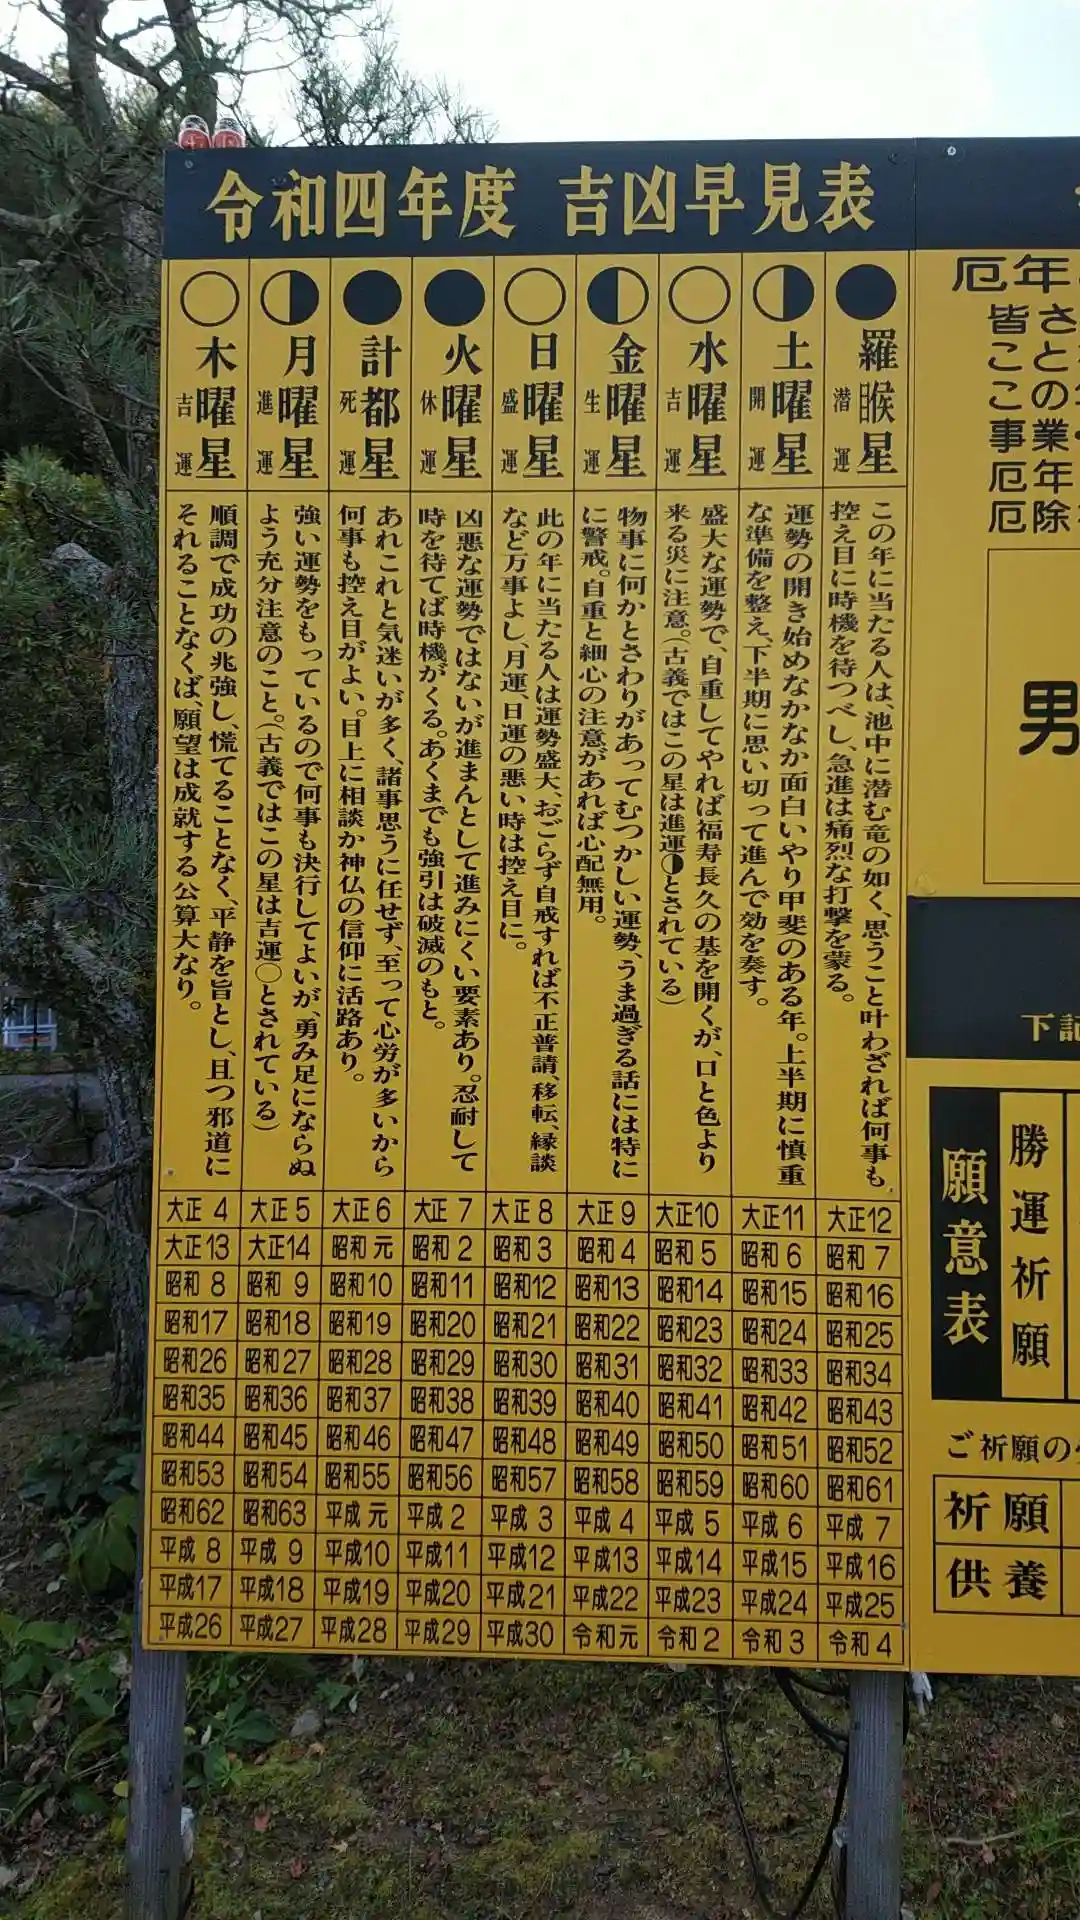 令和四年度 吉凶早見表
羅睺星
潜運
この年に当たる人は、池中に潜む竜の如く、思うこと叶わざれば何事も
控え目に時機を待つべし、急進は痛烈な打撃を蒙る。
土曜星
開運
運勢の開き始めなかなか面白いやり甲斐のある年。上半期に慎重
な準備を整え、下半期に思い切って進んで効を奏す。
水曜星
吉運
盛大な運勢で、自重してやれば福寿長久の基を開くが、口と色より
来る災に注意。(古義ではこの星は進運◑とされている)
金曜星
生運
物事に何かとさわりがあってむつかしい運勢、うま過ぎる話には特に
に警戒。自重と細心の注意があれば心配無用。
日曜星
盛運
此の年に当たる人は運勢盛大、おごらず自戒すれば不正普請、移転、縁談
など万事よし、月運、日運の悪い時は控え目に。
火曜星
休運
凶悪な運勢ではないが進まんとして進みにくい要素あり。忍耐して
時を待てば時機がくる。あくまでも強引は破滅のもと。
計都星
死運
あれこれと気迷いが多く、諸事思うに任せず、至って心労が多いから
何事も控え目がよい。目上に相談か神仏の信仰に活路あり。
月曜星
進運
強い運勢をもっているので何事も決行してよいが、勇み足にならぬ
よう充分注意のこと。(古義ではこの星は吉運○とされている)
木曜星
吉運
順調で成功の兆強し、慌てることなく、平静を旨とし、且つ邪道に
それることなくば、願望は成就する公算大なり。
大正4 大正5 大正6 大正7 大正8 大正9 大正10 大正11 大正12
大正13 大正14 昭和元 昭和2 昭和3 昭和4 昭和5 昭和6 昭和7
昭和8 昭和9 昭和10 昭和11 昭和12 昭和13 昭和14 昭和15 昭和16
昭和17 昭和18 昭和19 昭和20 昭和21 昭和22 昭和23 昭和24 昭和25
昭和26 昭和27 昭和28 昭和29 昭和30 昭和31 昭和32 昭和33 昭和34
昭和35 昭和36 昭和37 昭和38 昭和39 昭和40 昭和41 昭和42 昭和43
昭和44 昭和45 昭和46 昭和47 昭和48 昭和49 昭和50 昭和51 昭和52
昭和53 昭和54 昭和55 昭和56 昭和57 昭和58 昭和59 昭和60 昭和61
昭和62 昭和63 平成元 平成2 平成3 平成4 平成5 平成6 平成7
平成8 平成9 平成10 平成11 平成12 平成13 平成14 平成15 平成16
平成17 平成18 平成19 平成20 平成21 平成22 平成23 平成24 平成25
平成26 平成27 平成28 平成29 平成30 令和元 令和2 令和3 令和4
厄年
皆さ
ことの
こ
事業
厄年
厄除
男
下記
願意表
勝運祈願
ご祈願の
祈願
供養